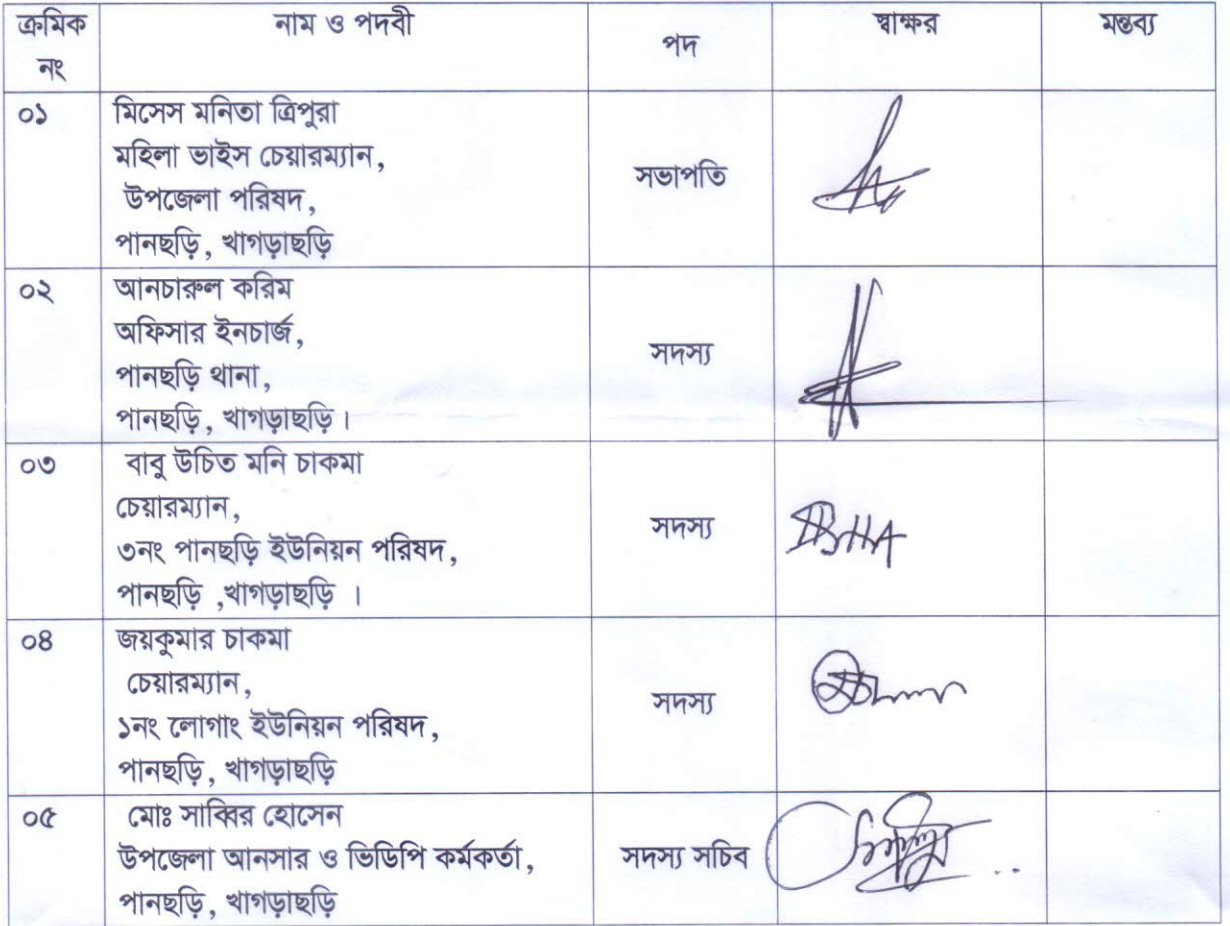 ক্রমিক নং নাম ও পদবী পদ স্বাক্ষর মন্তব্য
০১ মিসেস মনিতা ত্রিপুরা
মহিলা ভাইস চেয়ারম্যান,
উপজেলা পরিষদ,
পানছড়ি, খাগড়াছড়ি
সভাপতি
০২ আনচারুল করিম
অফিসার ইনচার্জ,
পানছড়ি থানা,
পানছড়ি, খাগড়াছড়ি।
সদস্য
০৩ বাবু উচিত মনি চাকমা
চেয়ারম্যান,
৩নং পানছড়ি ইউনিয়ন পরিষদ,
পানছড়ি ,খাগড়াছড়ি ।
সদস্য
০৪ জয়কুমার চাকমা
চেয়ারম্যান,
১নং লোগাং ইউনিয়ন পরিষদ,
পানছড়ি, খাগড়াছড়ি
সদস্য
০৫ মোঃ সাব্বির হোসেন
উপজেলা আনসার ও ভিডিপি কর্মকর্তা,
পানছড়ি, খাগড়াছড়ি
সদস্য সচিব